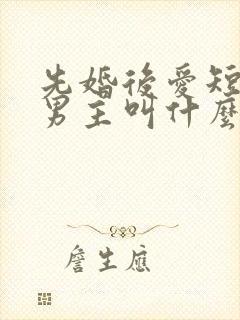 先婚後愛短
男主叫什麼
詹生應